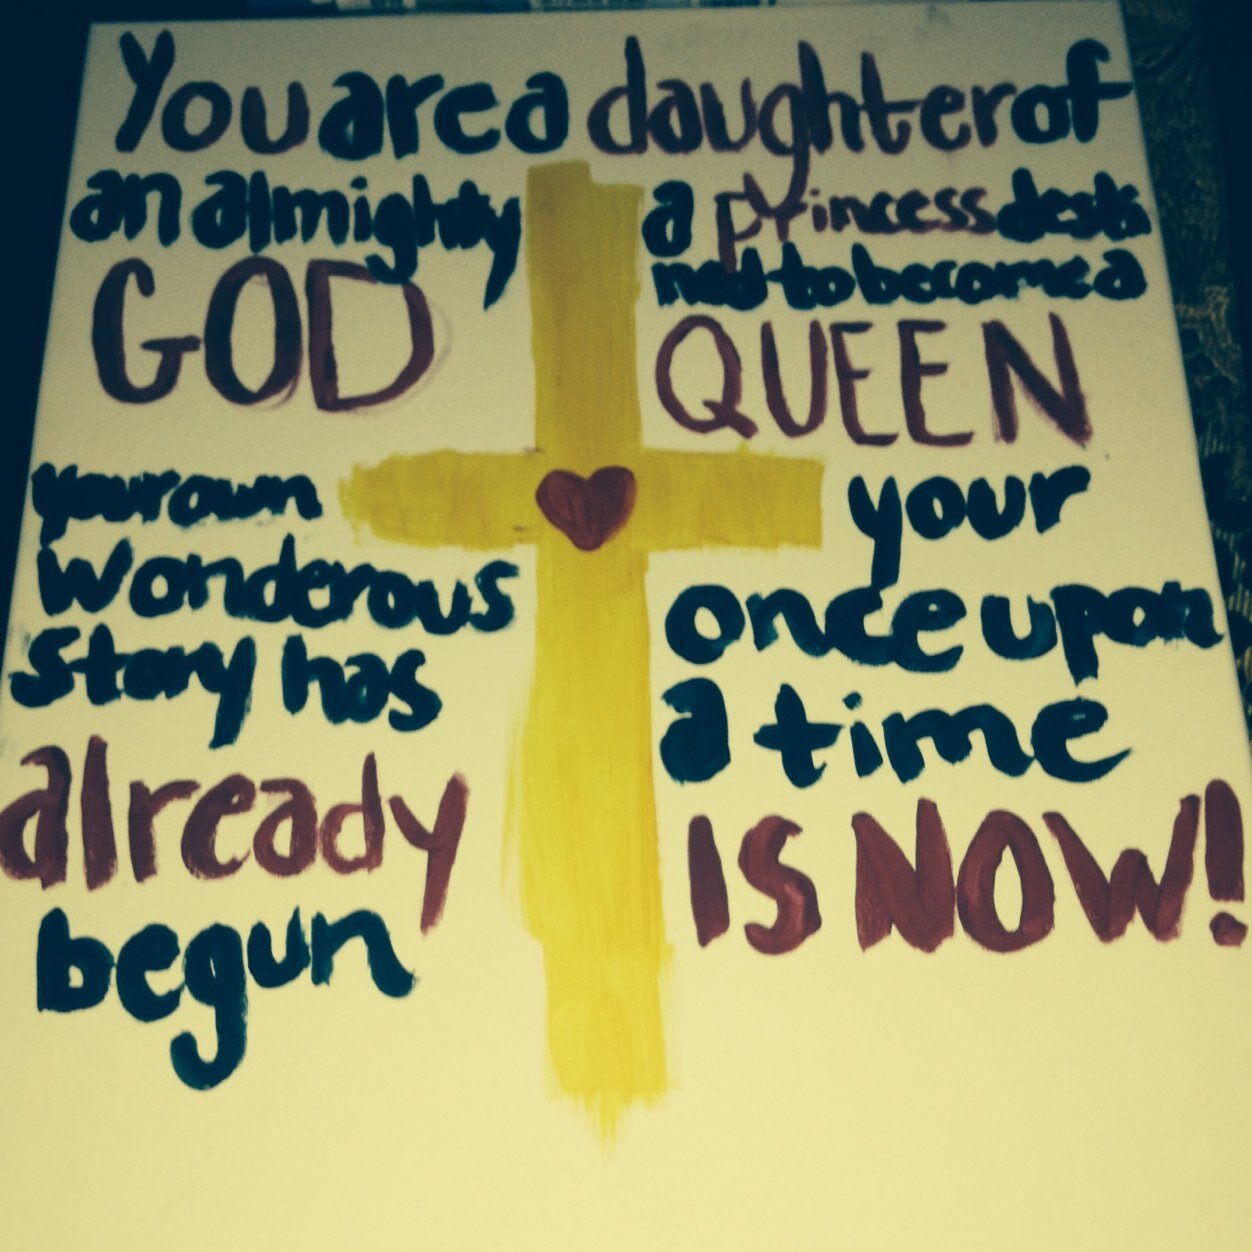 You are a daughter of
an almighty
GOD
a princess desti
ned to become a
QUEEN
your own
wonderous
story has
already
begun
your
once upon
a time
IS NOW!